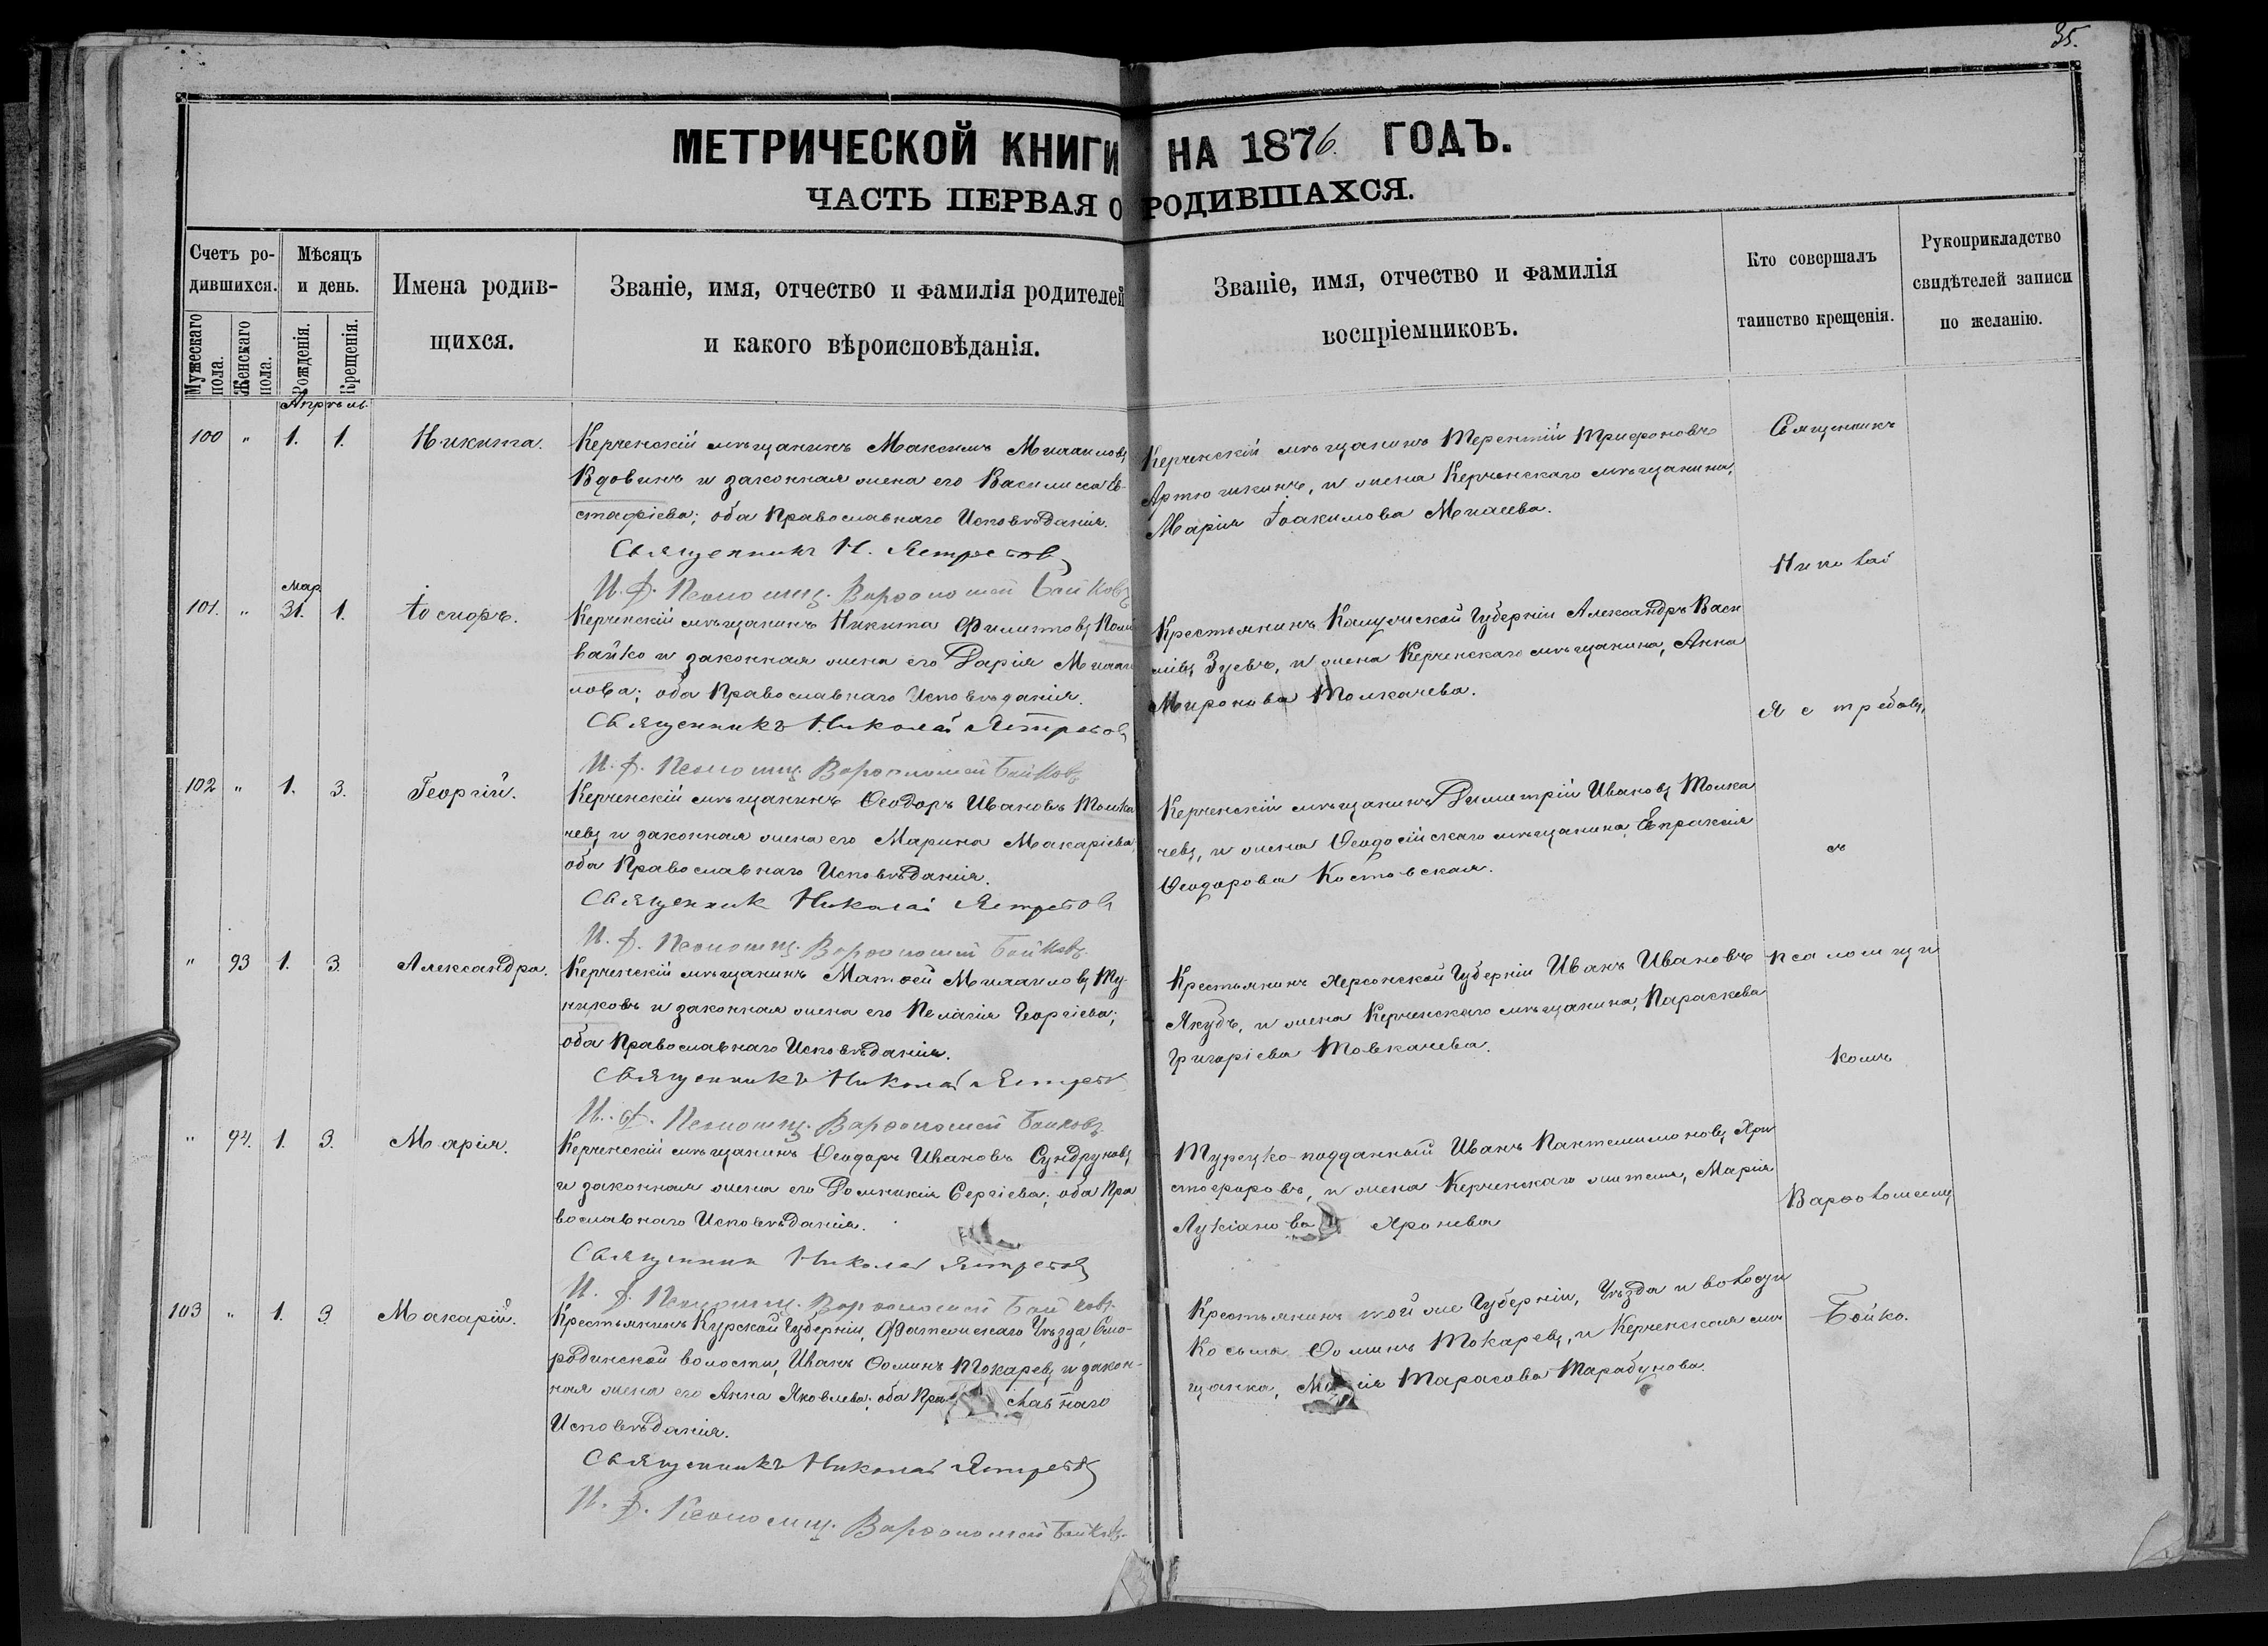 35.
МЕТРИЧЕСКОЙ КНИГИ НА 1876. ГОДЪ.
ЧАСТЬ ПЕРВАЯ О РОДИВШАХСЯ.
Счетъ ро-
дившихся.
Мужескаго пола.
Женскаго пола.
Мѣсяцъ
и день.
Рожденія.
Крещенія.
Имена родив-
щихся.
Званіе, имя, отчество и фамилія родителей
и какого вѣроисповѣданія.
Званіе, имя, отчество и фамилія
воспріемниковъ.
Кто совершалъ
таинство крещенія.
Рукоприкладство
свидѣтелей записи
по желанію.
Апрѣль
100 " 1. 1. Никита.
Керченскій мѣщанинъ Максимъ Михаиловъ
Вдовинъ и законная жена его Василиса Ев-
стафіева; оба Православнаго Исповѣданія.
Священникъ Н. Ястребовъ
И. Д. Псаломщ. Варѳоломей Бойковъ
Керченскій мѣщанинъ Терентій Трифоновъ
Артюшкинъ, и жена Керченскаго мѣщанина,
Марія Іоакимова Михаева.
101. " Мар. 31. 1. Іосифъ.
Керченскій мѣщанинъ Никита Филиповъ Поли
вайко и законная жена его Дарія Михаи
лова; оба Православнаго Исповѣданія.
Священникъ Николай Ястребовъ
И. Д. Псаломщ. Варѳоломей Бойковъ
Крестьянинъ Калужской Губерніи Александръ Васи
ліевъ Зуевъ, и жена Керченскаго мѣщанина, Анна
Миронова Толкачева.
102 " 1. 3. Георгій.
Керченскій мѣщанинъ Ѳеодоръ Ивановъ Толка
чевъ и законная жена его Марина Макаріева;
оба Православнаго Исповѣданія.
Священник Николай Ястребовъ
И. Д. Псаломщ. Варѳоломей Бойковъ
Керченскій мѣщанинъ Димитрій Ивановъ Толка
чевъ, и жена Ѳеодосійскаго мѣщанина, Евпраксія
Ѳеодорова Костовская.
" 93 1. 3. Александра.
Керченскій мѣщанинъ Матѳей Михаиловъ Ту-
никовъ и законная жена его Пелагія Георгіева;
оба Православнаго Исповѣданія.
Священникъ Николай Ястребов
И. Д. Псаломщ. Варѳоломей Бойковъ
Крестьянинъ Херсонской Губерніи Иванъ Ивановъ
Якубъ, и жена Керченскаго мѣщанина, Параскева
Григоріева Товкачева.
" 94. 1. 3. Марія.
Керченскій мѣщанинъ Ѳеодоръ Ивановъ Сундруковъ
и законная жена его Домникія Сергіева; оба Пра
вославнаго Исповѣданія.
Священник Николай Ястребовъ
И. Д. Псаломщ. Варѳоломей Бойковъ
Турецко-подданный Иванъ Пантелимоновъ Хри
стофоровъ, и жена Керченскаго жителя, Марія
Лукіанова Хронева
103 " 1. 3. Макарій.
Крестьянинъ Курской Губерніи, Фатежскаго Уѣзда, Смо-
родинской волости, Иванъ Ѳоминъ Токаревъ и закон-
ная жена его Анна Яковлева; оба Православнаго
Исповѣданія.
Священникъ Николай Ястребовъ
И. Д. Псаломщ. Варѳоломей Бойковъ
Крестьянинъ той же Губерніи, Уѣзда и волости
Косьма Ѳоминъ Токаревъ, и Керченская мѣ
щанка, Марія Тарасова Тарабунова.
Священникъ
Николай
Ястребовъ,
съ
псаломщи
комъ
Варѳоломеемъ
Бойко.